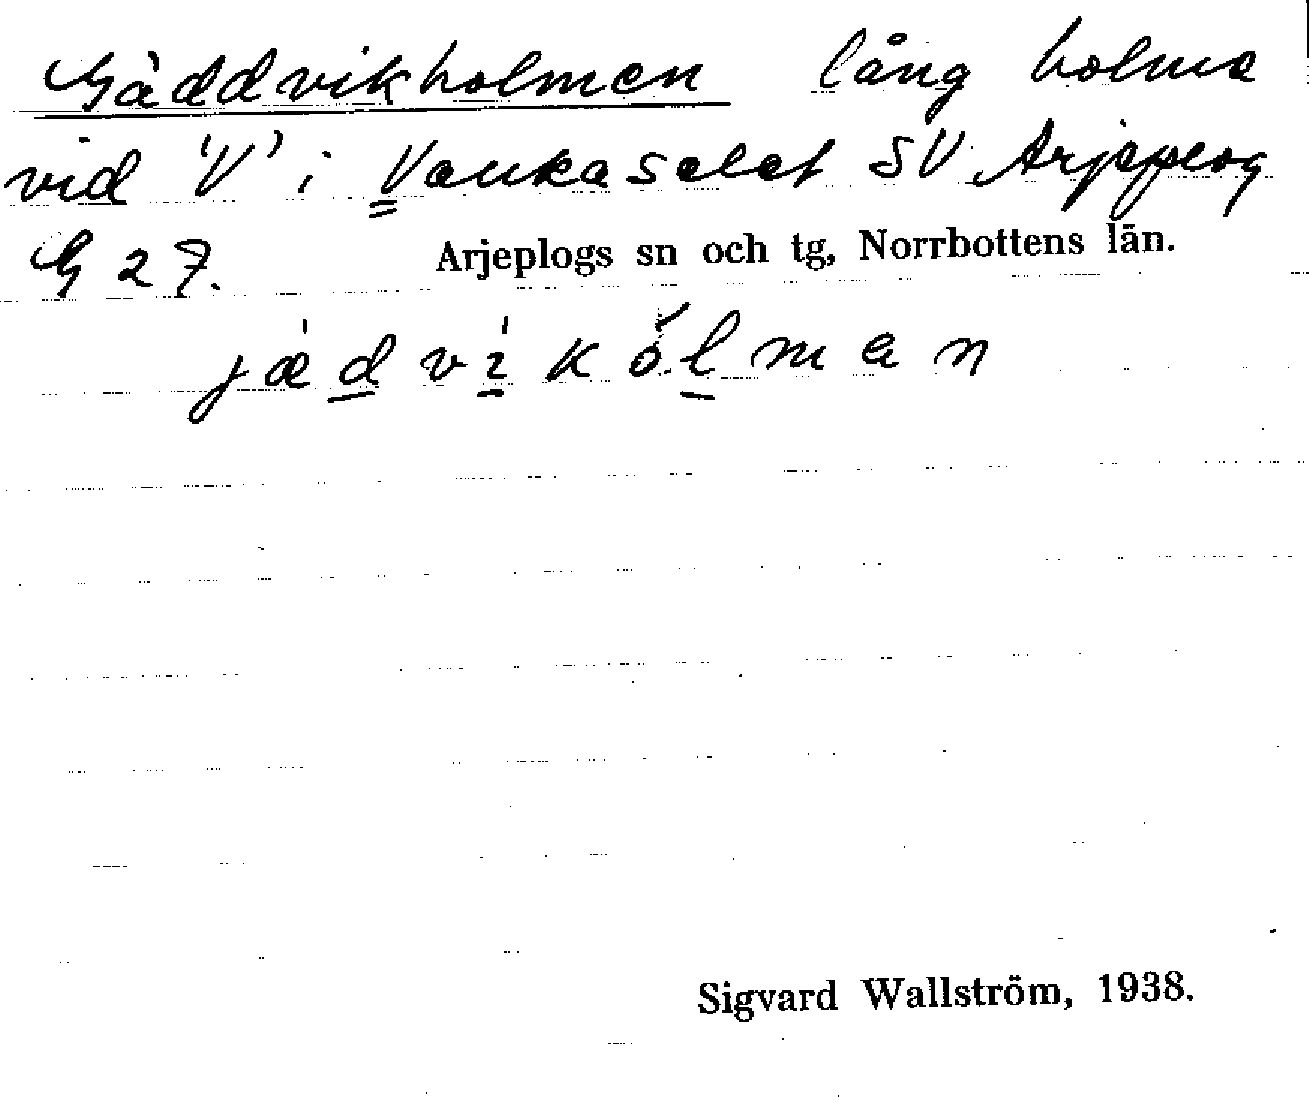 Gäddvikholmen lång holme
vid 'V' i Vaukaselet SV Arjeplog
G 27. Arjeplogs sn och tg, Norrbottens län.
jædvikålman
Sigvard Wallström, 1938.